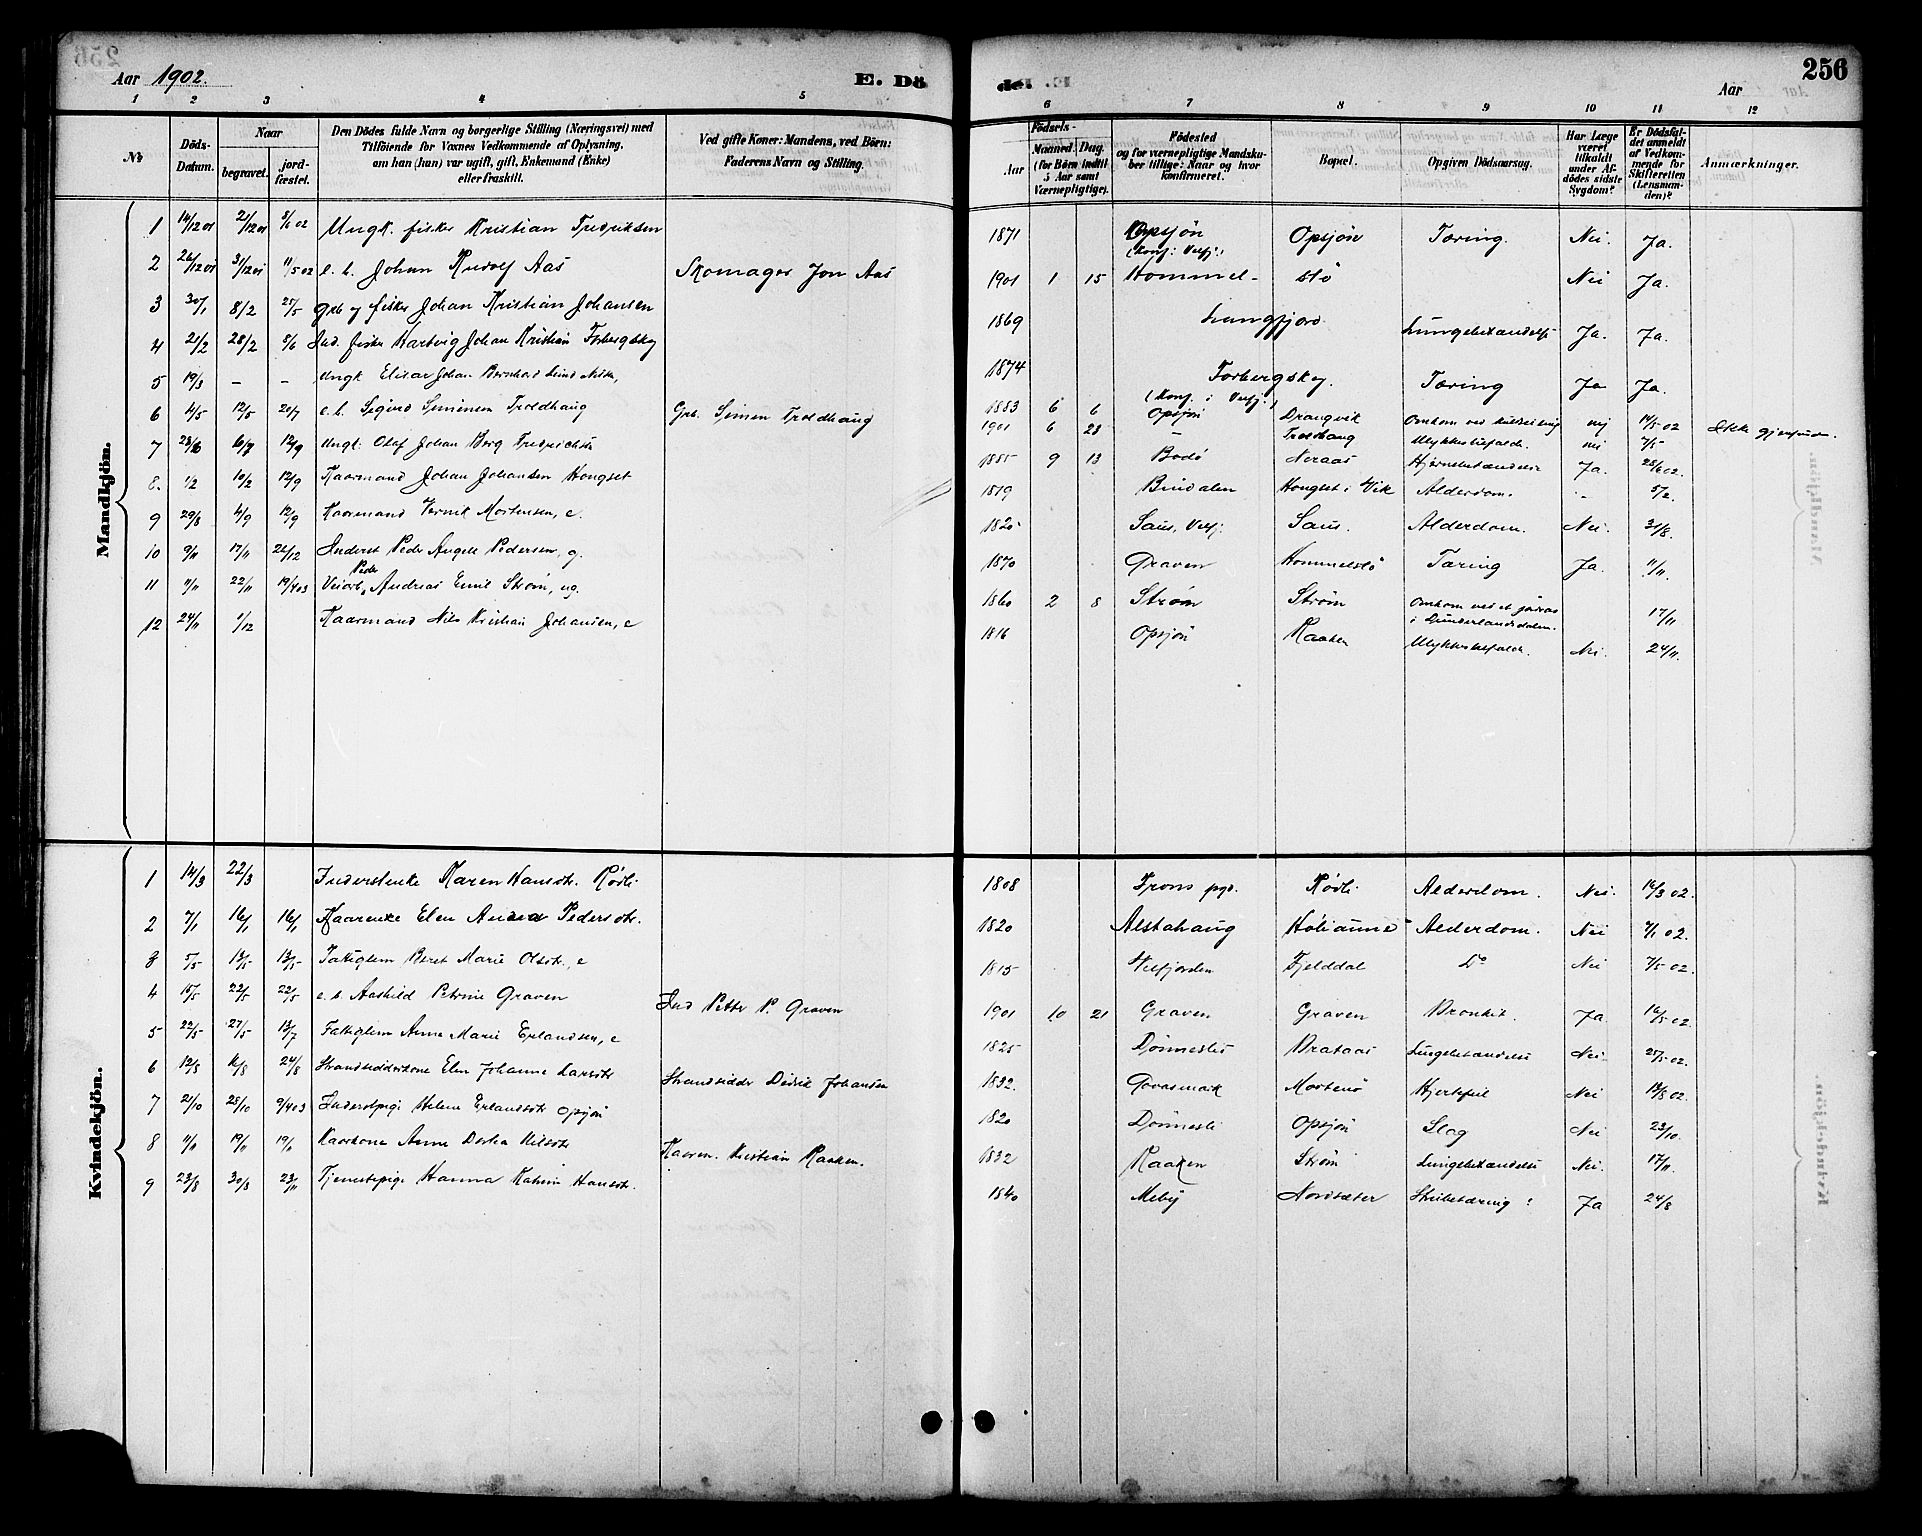 Aar 1902. E. Dö de. Aar 256
1 2 3 4 5 6 7 8 9 10 11 12
No
Döds-Datum.
Naar
begravet.
jord-fæstet.
Den Dödes fulde Navn og borgerlige Stilling (Næringsvei) med
Tilföiende for Voxnes Vedkommende af Oplysning,
om han (hun) var ugift, gift, Enkemand (Enke)
eller fraskilt.
Ved gifte Koner: Mandens, ved Börn:
Faderens Navn og Stilling.
Födsels-
Aar
Maaned. Dag.
(for Börn indtil
5 Aar samt
Værnepligtige).
Födested
og for værnepligtige Mandsku-
ber tillige: Naar og hvor
konfirmeret.
Bopæl.
Opgiven Dödsaarsag.
Har Læge
været
tilkaldt
under Af-
dödes sidste
Sygdom?
Er Dödsfal-
det anmeldt
af Vedkom-
mende for
Skifteretten
(Lensman-
den)?
Anmærkninger.
Mandkjön.
1 14/12 01 2/12 01 5/6 02 Ungk. fisker Kristian Fredriksen 1871 Opsjøn Opsjøn Tæring. Nei. Ja.
(Konf: Vefj:)
2 26/12 01 31/12 01 11/5 02 e. b. Johan Rudolf Aas Skomager Jon Aas 1901 1 15 Hommel- stø Nei Ja.
3 30/1 8/2 25/5 Grb og fisker Johan Kristian Johansen 1869 Lungebetændelse Ja. Ja.
4 21/2 28/2 5/6 Ind. fisker Hartvig Johan Kristian Forbergskog 1874 Forbergskog. Tæring Ja Ja.
(Konf. i Vefj:)
5 19/3 - - Ungk Johan Bernhard 1883 6 6 Opsjøn Drangvik Omkom ved nej 14/5 02 Ikke gjenfund.
6 4/5 12/5 20/7 e. b. Sigurd Simensen Troldhaug Grb. Simen Troldhaug 1901 6 23 Troldhaug Ulykkestilfælde. nei 7/5
7 6/7 12/9 Ungk. Olaf Johan Berg 1885 9 13 Bodø Neraas Hjernebetændelse Ja. 28/6 02.
8. 1/2 10/2 12/9 Kaarmand Johan Johansen Hongset 1819 Bindalen Hongset i Vik Alderdom. 5/2.
9 29/8 4/9 12/9 Kaarmand Mortensen, e. 1820 Saus, Vefj: Saus. Alderdom. Nei 31/8.
10 9/11 17/11 22/12 Inderst Peder Angell Pedersen, g. 1870 Graven Hommelstø Tæring Ja. 11/11.
11 7/11 22/11 19/4 03 Veiarb. Peder Andreas Emil Strøm, ug. 1860 2 8 Strøm Strøm Omkom ved et jordras 17/11
i Dunderlandsdalen.
12 24/11 1/12 Kaarmand Nils Kristian Johansen, e 1816 Opsjøn Raaken Ulykkestilfælde. Nei. 24/11.
Kvindekjön.
1 14/3 22/3 Inderstenke Maren Hansdtr. Rødli 1808 pgd. Rødli Alderdom. Nei. 16/3 02.
2 7/1 16/1 16/1 Kaarenke Elen Anna Pedersdtr. 1820 Alstahaug Alderdom. Nei 9/1 02.
3 5/5 13/5 13/5 Fattiglem Beret Marie Olsdtr., e 1815 Velfjorden Fjelddal Do Nei 7/5 02.
4 15/5 22/5 22/5 e. b. Aashild Petrine Graven Ind Petter P. Graven 1901 10 21 Graven Graven Bronkit. Ja 16/5 02.
5 22/5 27/5 13/7 Fattiglem Anne Marie Erlandsen, e 1825 Dønneslis Brataas Lungebetændelse Nei. 27/5 02.
6 12/8 16/8 24/8 Strandsidderkone Elen Johanne Larsdtr Strandsidder Didrik Johansen 1832. Hjertefeil Nei 13/8 02.
7 21/10 25/10 9/4 03 Inderstpige Helene Erlandsdtr Opsjøn 1820 Dønnesli Opsjøn Slag Nei 23/10.
8 11/11 19/11 19/11 Kaarkone Anne Dortea Nilsdtr Kaarm. Kristian Raaken. 1832 Raaken Strøm Lungebetændelse Nei. 17/11.
9 23/8 30/8 23/11 Tjenestepige Hanna Katrine Hansdtr. 1840 Meby Nordsæter Ja 24/8